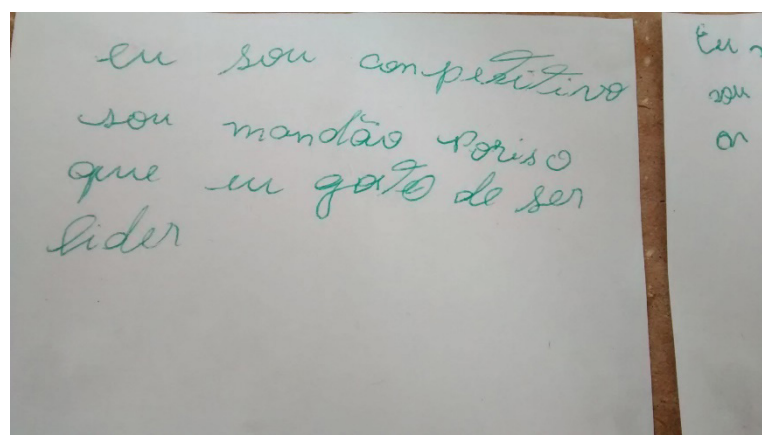 eu sou conpetitivo
sou mandão poriso
que eu gosto de ser
lider
Eu
sou